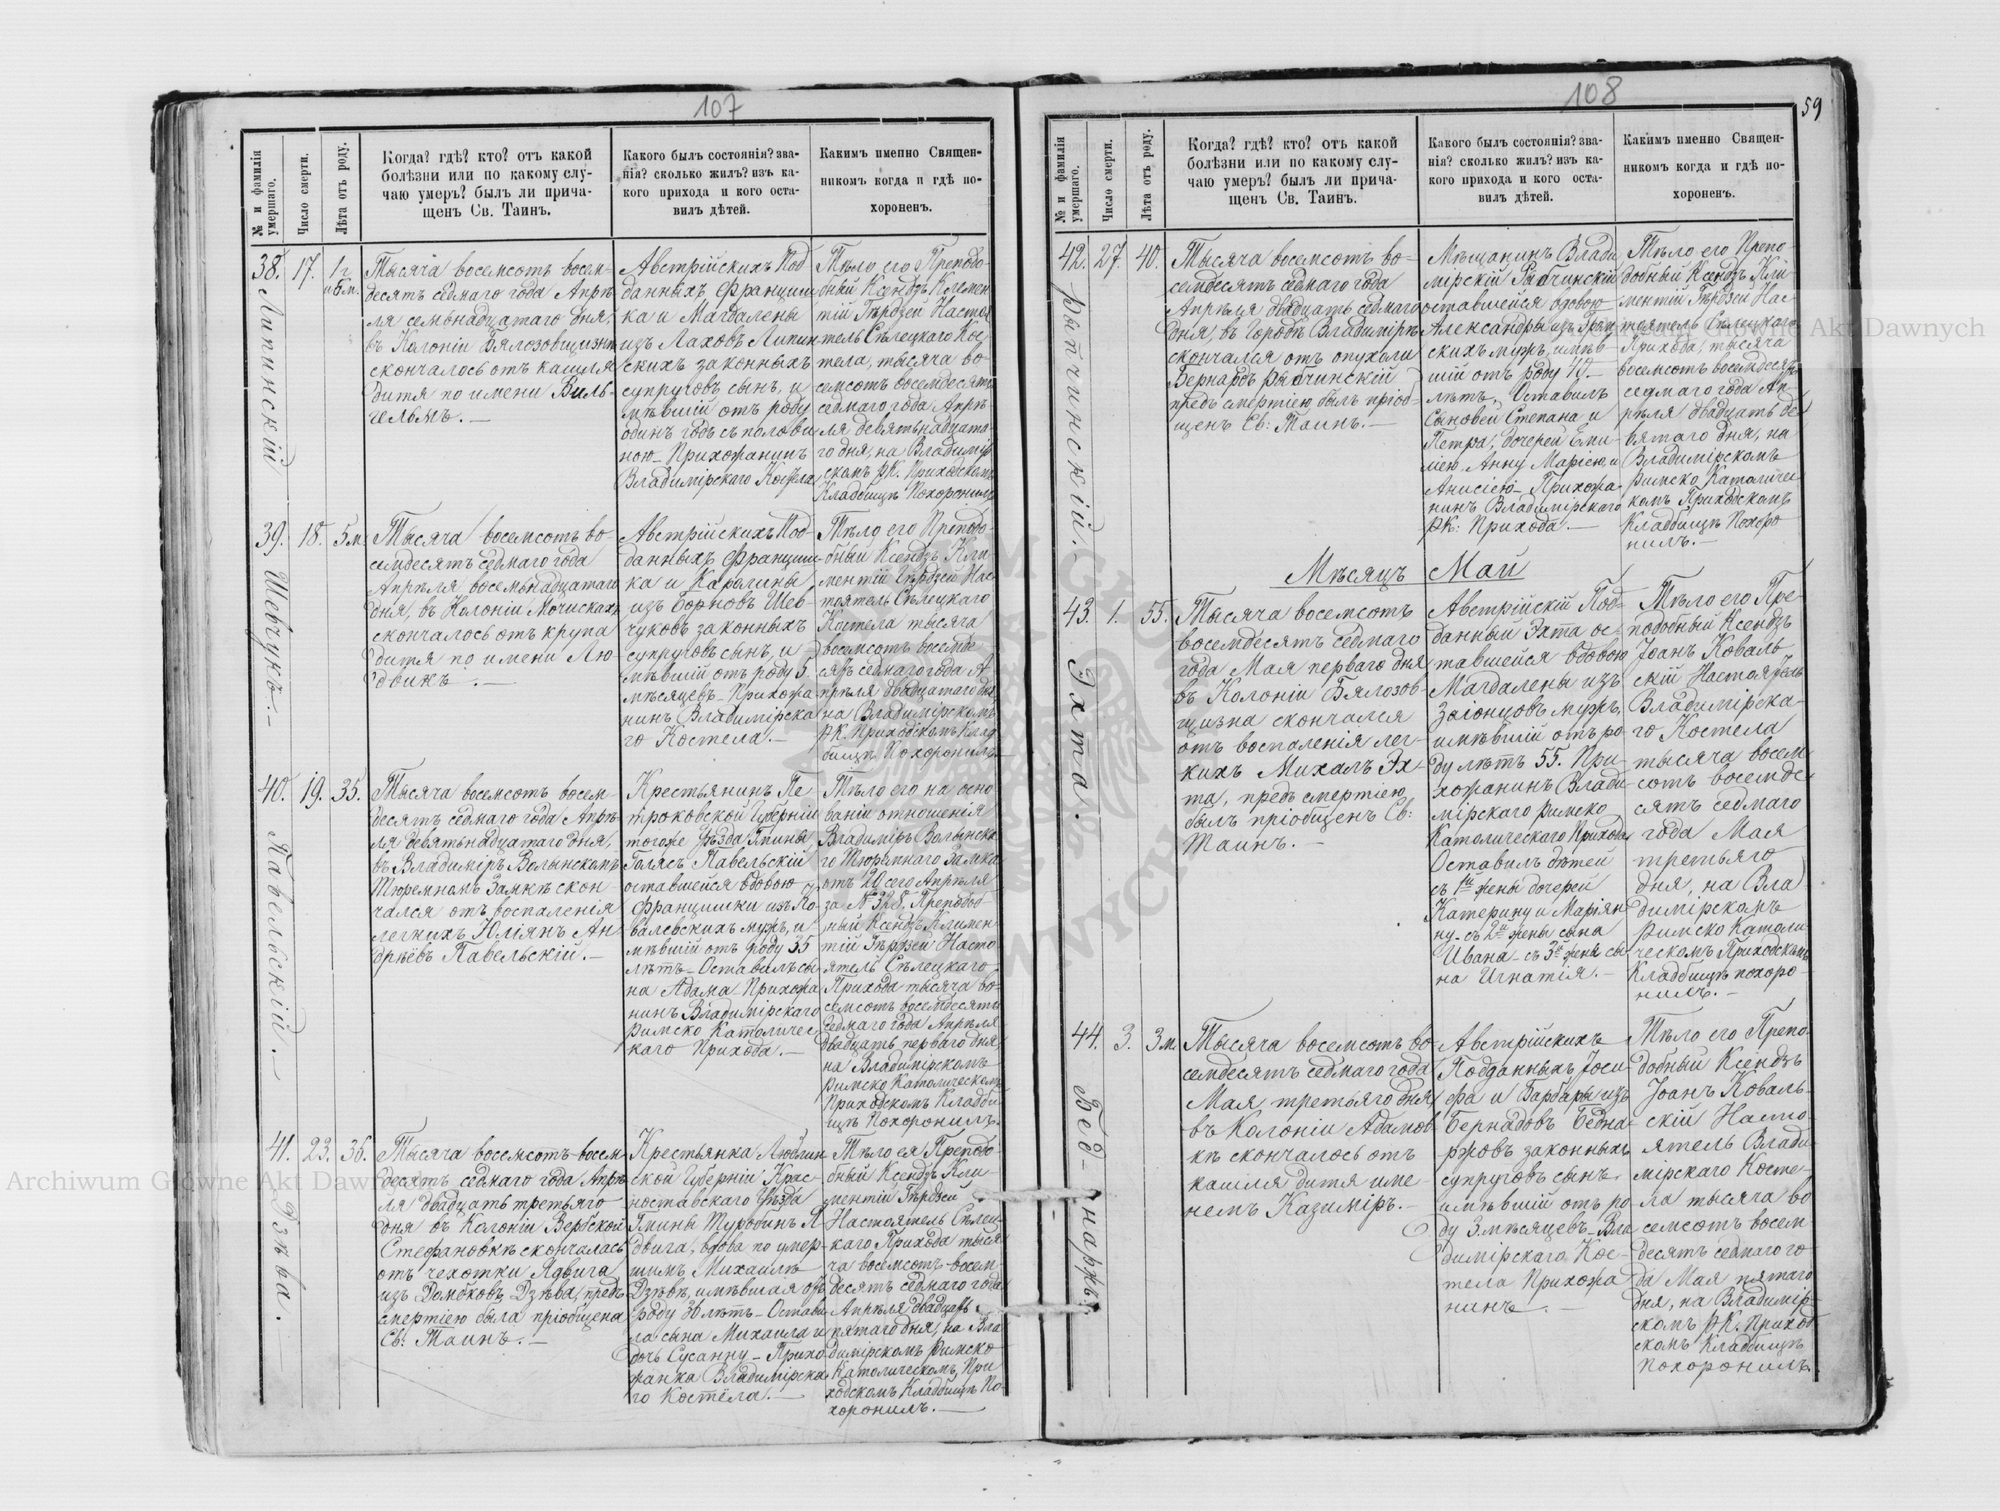 107
№ и фамилія умершаго.
Число смерти.
Лѣта отъ роду.
Когда? гдѣ? кто? отъ какой
болѣзни или по какому слу-
чаю умеръ? былъ ли прича-
щенъ Св. Таинъ.
Какого былъ состоянія? зва-
нія? сколько жилъ? изъ ка-
кого прихода и кого оста-
вилъ дѣтей.
Какимъ именно Священ-
никомъ когда и гдѣ по-
хороненъ.
38. Липинскій
17.
1 г. и 6 м.
Тысяча восемсотъ восем-
десятъ седмаго года Апрѣ-
ля семьнадцатаго дня,
въ Колоніи Бялозовщизнѣ
скончалось отъ кашля
дитя по имени Виль-
гельмъ. —
Австрійскихъ Под
данныхъ Франциш-
ка и Магдалены
изъ Лаховъ Липин
скихъ законныхъ
супруговъ сынъ, и
мѣвшій отъ роду
одинъ годъ съ полови
ною – Прихожанинъ
Владимірскаго Костела
Тѣло его Преподо-
бный Ксендзъ Клемен
тій Гѣрдзей Насто
тель Сѣлецкаго Кос
тела, тысяча во
семсотъ восемдесятъ
седмаго года Апрѣ-
ля девятьнадцата-
го дня, на Владимір
скомъ РК. Приходскомъ
Кладбищѣ Похоронилъ
39. Шевчукъ. —
18.
5 м
Тысяча восемсотъ во-
семдесятъ седмаго года
Апрѣля восемьнадцатаго
дня, въ Колоніи Мочискахъ
скончалось отъ крупа
дитя по имени Лю-
двикъ. —
Австрійскихъ Под-
данныхъ Францишь-
ка и Каролины
изъ Борновъ Шев-
чуковъ законныхъ
супруговъ сынъ, и
мѣвшій отъ роду 5
мѣсяцевъ – Прихожа
нинъ Владимірска
го Костела. —
Тѣло его Преподо-
бный Ксендзъ Кли-
ментій Гѣрдзей Нас
тоятель Сѣлецкаго
Костела тысяча
восемсотъ восемде
сятъ седмаго года А
прѣля двадцатаго дня
на Владимірскомъ
РК. Приходскомъ Клад
бищѣ Похоронилъ. —
40. Павельскій. —
19.
35.
Тысяча восемсотъ восем-
десятъ седмаго года Апрѣ-
ля девятьнадцатаго дня,
въ Владиміръ Волынскомъ
Тюремномъ Замкѣ скон-
чался отъ воспаленія
легкихъ Юліянъ Ан
дрѣевъ Павельскій. —
Крестьянинъ Пе
троковской Губерніи
тогоже Уѣзда Гмины
Голясъ Павельскій
оставшейся вдовою
Францишки изъ Ко-
валевскихъ мужъ, и
мѣвшій отъ роду 35
лѣтъ – Оставилъ сы-
на Адама – Прихожа
нинъ Владимірскаго
Римско Католичес-
каго Прихода. —
Тѣло его на осно
ваніи отношенія
Владиміръ Волынска
го Тюремнаго Замка
отъ 20 сего Апрѣля
за № 328. Преподоб
ный Ксендзъ Климен
тій Гѣрдзей Насто
ятель Сѣлецкаго
Прихода тысяча во-
семсотъ восемдесятъ
седмаго года Апрѣля
двадцать перваго дня,
на Владимірскомъ
Римско Католическомъ
Приходскомъ Кладби-
щѣ Похоронилъ. —
41. Дзѣва. —
23.
36.
Тысяча восемсотъ восем
десятъ седмаго года Апрѣ
ля двадцать третьяго
дня въ Колоніи Вербской
Стефановкѣ скончалась
отъ чехотки Ядвига
изъ Домбковъ Дзѣва, предъ
смертію была пріобщена
Св: Таинъ. —
Крестьянка Люблин
ской Губерніи Крас-
ноставскаго Уѣзда
Гмины Туробинъ Я
двига, вдова по умер-
шимъ Михаилѣ
Дзѣвѣ, имѣвшая отъ
роду 36 лѣтъ – Остави
ла сына Михаила и
дочь Сусанну – Прихо
жанка Владимірска
го Костёла. —
Тѣло ея Преподо-
бный Ксендзъ Кли-
ментій Гѣрдзей
Настоятель Сѣлец-
каго Прихода тыся
ча восемсотъ восем
десятъ седмаго года
Апрѣля двадцать
пятаго дня, на Вла
димірскомъ Римско
Католическомъ При
ходскомъ Кладбищѣ По-
хоронилъ. —
108
59
№ и фамилія умершаго.
Число смерти.
Лѣта отъ роду.
Когда? гдѣ? кто? отъ какой
болѣзни или по какому слу-
чаю умеръ? былъ ли прича-
щенъ Св. Таинъ.
Какого былъ состоянія? зва-
нія? сколько жилъ? изъ ка-
кого прихода и кого оста-
вилъ дѣтей.
Какимъ именно Священ-
никомъ когда и гдѣ по-
хороненъ.
42. Рыбчинскій.
27.
40.
Тысяча восемсотъ во-
семдесятъ седмаго года
Апрѣля двадцать седмаго
дня, въ Городѣ Владимірѣ
скончался отъ опухоли
Бернардъ Рыбчинскій
предъ смертію былъ пріоб-
щенъ Св: Таинъ. —
Мѣщанинъ Влади
мірскій Рыбчинскій
оставшейся вдовою
Александры изъ
скихъ мужъ, имѣв-
шій отъ роду 40.
лѣтъ, Оставилъ
Сыновей Степана и
Петра, дочерей Еми-
лію, Анну Марію, и
Анисію – Прихожа-
нинъ Владимірскаго
РК: Прихода. —
Тѣло его Препо-
добный Ксендзъ Кли-
ментій Гѣрдзей Нас-
тоятель Сѣлецкаго
Прихода, тысяча
восемсотъ восемдесятъ
седмаго года Ап-
рѣля двадцать де-
вятаго дня, на
Владимірскомъ
Римско Католичес-
комъ Приходскомъ
Кладбищѣ Похоро-
нилъ. —
Мѣсяцъ Май
43. Эхта.
1.
55.
Тысяча восемсотъ
восемдесятъ седмаго
года Мая перваго дня
въ Колоніи Бялозов-
щизна скончался
отъ воспаленія лег-
кихъ Михалъ Эх-
та, предъ смертію
былъ пріобщенъ Св:
Таинъ. —
Австрійскій Под-
данный Эхта ос-
тавшейся вдовою
Магдалены изъ
Заіонцовъ мужъ,
имѣвшій отъ ро-
ду лѣтъ 55. При-
хожанинъ Влади-
мірскаго Римско
Католическаго Прихода
Оставилъ дѣтей
съ 1ой жены дочерей
Катерину и Маріян
ну – съ 2й жены сына
Ивана – съ 3й жены сы-
на Игнатія. —
Тѣло его Пре-
подобный Ксендзъ
Іоанъ Коваль-
скій Настоятель
Владимірска-
го Костела
тысяча восем
сотъ восемде-
сятъ седмаго
года Мая
третьяго
дня, на Вла-
димірскомъ
Римско Католи-
ческомъ Приходскомъ
Кладбищѣ похоро-
нилъ. —
44. Бед-
наржъ.
3.
3 м.
Тысяча восемсотъ во-
семдесятъ седмаго года
Мая третьяго дня,
въ Колоніи Адамов
кѣ скончалось отъ
кашля дитя име-
немъ Казиміръ. —
Австрійскихъ
Подданныхъ Іоси-
фа и Барбары изъ
Бернадовъ Бедна-
ржовъ законныхъ
супруговъ сынъ,
имѣвшій отъ ро-
ду 3 мѣсяцевъ – Вла
димірскаго Кос-
тела Прихожа
нинъ. —
Тѣло его Препо-
добный Ксендзъ
Іоанъ Коваль-
скій Насто-
ятель Влади-
мірскаго Косте-
ла тысяча во
семсотъ восем
десятъ седмаго го-
да Мая пятаго
дня, на Владимір-
скомъ РК. Приход
скомъ Кладбищѣ
похоронилъ.
Archiwum Główne Akt Dawnych
Główne Akt Dawnych